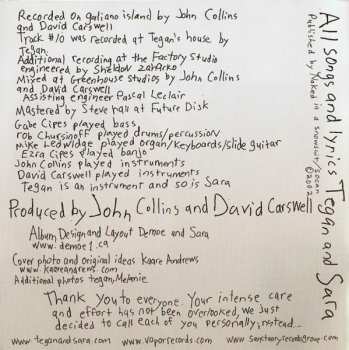 Recorded On galiano island by John Collins
and David Carswell
Track #10 was recorded at Tegan's house by
Tegan.
Additional recording at the Factory Studio
engineered by Sheldon Zaharko
Mixed at Greenhouse Studios by John Collins
and David Carswell
Assisting engineer Pascal Leclair
Mastered by Steve Hall at Future Disk
Gabe Cipes played bass
rob Chursinoff played drums/percussion
Mike Ledwidge played organ/Keyboards/slide guitar
Ezra Cipes played banjo
John Collins played instruments
David Carswell played instruments
Tegan is an instrument and so is Sara
Produced by John Collins and David Carswell
Album Design and Layout Demoe and Sara
www.demoe1.ca
Cover photo and original ideas Kaare Andrews
www.kaareandrews.com
Additional photos tegan, Melanie
Thank you to everyone. Your intense care
and effort has not been overlooked, we Just
decided to call each of you personally, instead...
www.teganandsara.com www.vaporrecords.com www.sanctuaryrecordsgroup.com
All songs and lyrics Tegan and Sara
Published by Naked in a snowsuit/socan
©2002